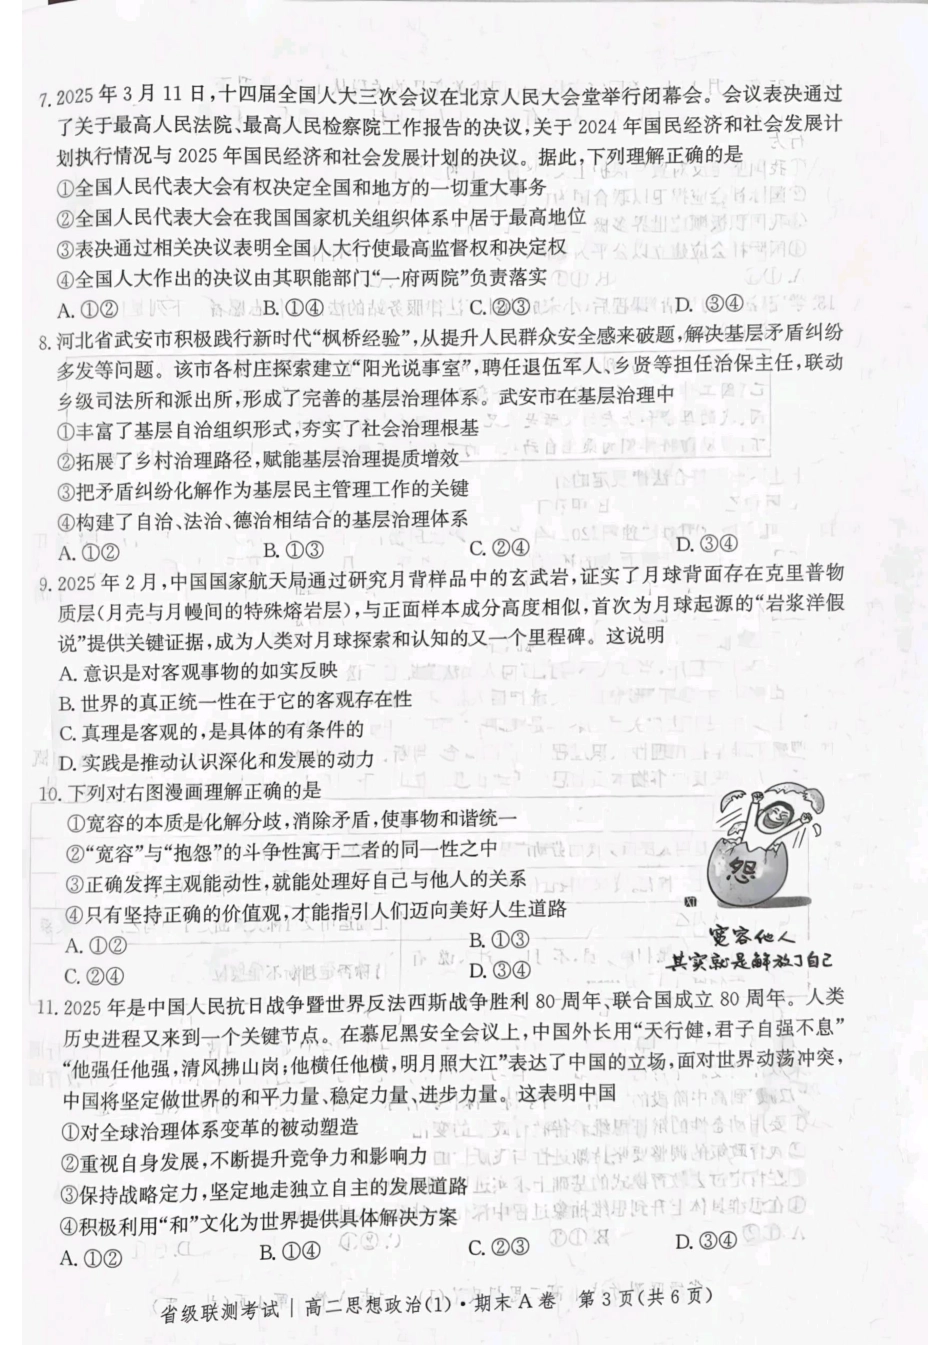 7. 2025年3月11日,十四届全国人大三次会议在北京人民大会堂举行闭幕会。会议表决通过
了关于最高人民法院、最高人民检察院工作报告的决议,关于2024年国民经济和社会发展计
划执行情况与2025年国民经济和社会发展计划的决议。据此,下列理解正确的是
①全国人民代表大会有权决定全国和地方的一切重大事务
②全国人民代表大会在我国国家机关组织体系中居于最高地位
③表决通过相关决议表明全国人大行使最高监督权和决定权
④全国人大作出的决议由其职能部门“一府两院”负责落实
A. ①② B. ①④ C. ②③ D. ③④
8. 河北省武安市积极践行新时代“枫桥经验”,从提升人民群众安全感来破题,解决基层矛盾纠纷
多发等问题。该市各村庄探索建立“阳光说事室”,聘任退伍军人、乡贤等担任治保主任,联动
乡级司法所和派出所,形成了完善的基层治理体系。武安市在基层治理中
①丰富了基层自治组织形式,夯实了社会治理根基
②拓展了乡村治理路径,赋能基层治理提质增效
③把矛盾纠纷化解作为基层民主管理工作的关键
④构建了自治、法治、德治相结合的基层治理体系
A. ①② B. ①③ C. ②④ D. ③④
9. 2025年2月,中国国家航天局通过研究月背样品中的玄武岩,证实了月球背面存在克里普物
质层(月壳与月幔间的特殊熔岩层),与正面样本成分高度相似,首次为月球起源的“岩浆洋假
说”提供关键证据,成为人类对月球探索和认知的又一个里程碑。这说明
A. 意识是对客观事物的如实反映
B. 世界的真正统一性在于它的客观存在性
C. 真理是客观的,是具体的有条件的
D. 实践是推动认识深化和发展的动力
10. 下列对右图漫画理解正确的是
①宽容的本质是化解分歧,消除矛盾,使事物和谐统一
②“宽容”与“抱怨”的斗争性寓于二者的同一性之中
③正确发挥主观能动性,就能处理好自己与他人的关系
④只有坚持正确的价值观,才能指引人们迈向美好人生道路
A. ①② B. ①③
C. ②④ D. ③④
怨
宽容他人
其实就是解放了自己
11. 2025年是中国人民抗日战争暨世界反法西斯战争胜利80周年、联合国成立80周年。人类
历史进程又来到一个关键节点。在慕尼黑安全会议上,中国外长用“天行健,君子自强不息”
“他强任他强,清风拂山岗;他横任他横,明月照大江”表达了中国的立场,面对世界动荡冲突,
中国将坚定做世界的和平力量、稳定力量、进步力量。这表明中国
①对全球治理体系变革的被动塑造
②重视自身发展,不断提升竞争力和影响力
③保持战略定力,坚定地走独立自主的发展道路
④积极利用“和”文化为世界提供具体解决方案
A. ①② B. ①④ C. ②③ D. ③④
省级联测考试 | 高二思想政治(1)·期末A卷 第3页(共6页)